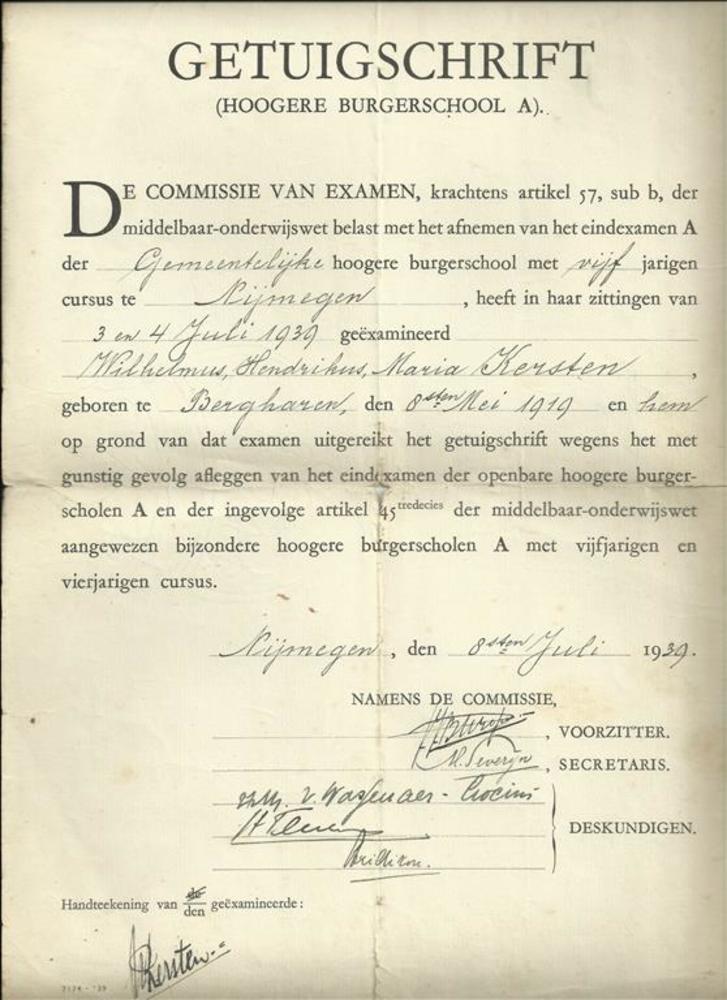 GETUIGSCHRIFT
(HOOGERE BURGERSCHOOL A)..
DE COMMISSIE VAN EXAMEN, krachtens artikel 57, sub b, der
middelbaar-onderwijswet belast met het afnemen van het eindexamen A
der Gemeentelijke hoogere burgerschool met vijf jarigen
cursus te Nijmegen, heeft in haar zittingen van
3 en 4 Juli 1939 geëxamineerd
Wilhelmus, Hendrikus, Maria Kersten,
geboren te Bergharen, den 8sten Mei 1919 en hem
op grond van dat examen uitgereikt het getuigschrift wegens het met
gunstig gevolg afleggen van het eindexamen der openbare hoogere burger-
scholen A en der ingevolge artikel 45tredecies der middelbaar-onderwijswet
aangewezen bijzondere hoogere burgerscholen A met vijfjarigen en
vierjarigen cursus.
Nijmegen, den 8sten Juli 1939.
NAMENS DE COMMISSIE,
, VOORZITTER.
M. Severijn, SECRETARIS.
v. Wassenaer - Crocini
DESKUNDIGEN.
Handteekening van de den geëxamineerde:
Kersten
7174 - '39